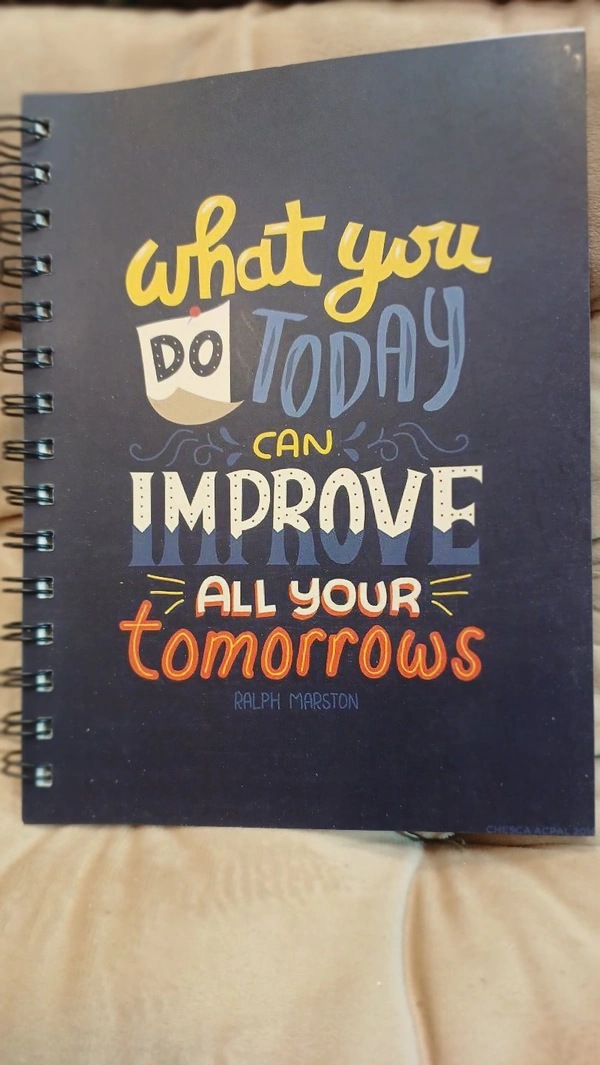 what you
DO TODAY
CAN
IMPROVE
ALL YOUR
tomorrows
RALPH MARSTON
CHESCA ACPAL